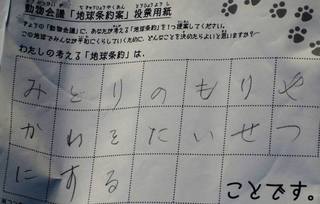 動物会議「地球条約案」投票用紙
きょうの「動物会議」に、あなたが考える「地球条約」を1つ提案してください。
この地球でみんなが平和にくらしていくために、どんなことを決めたらよいと思いますか？
わたしの考える「地球条約」は、
みどりのもりや
かわをたいせつ
にする
ことです。